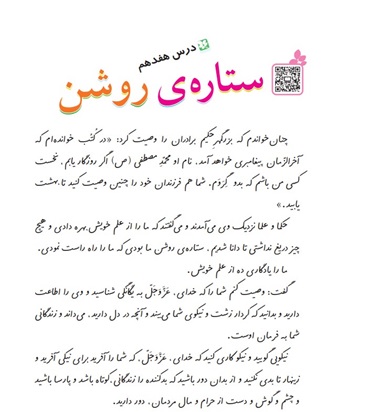 درس هفدهم
ستاره‌ی روشن
چنان خواندم که بزرگمهر حکیم برادران را وصیت کرد: «در کُتُب خوانده‌ام که
آخرالزمان پیغامبری خواهد آمد، نام او محمّدِ مصطفی (ص) اگر روزگار یابم، نخست
کسی من باشم که بدو بگروم. شما هم فرزندان خود را چنین وصیت کنید تا بهشت
یابید.»
حکما و علما نزدیک وی می‌آمدند و می‌گفتند که ما را از علم خویش، بهره دادی و هیچ
چیز دریغ نداشتی تا دانا شدیم. ستاره‌ی روشن ما بودی که ما را راه راست نمودی.
ما را یادگاری ده از علم خویش.
گفت: وصیت کنم شما را که خدای، عَزَّوَجَلَّ، به یگانگی شناسید و وی را اطاعت
دارید و بدانید که کردار زشت و نیکوی شما می‌بیند و آنچه در دل دارید، می‌داند و زندگانی
شما به فرمان اوست.
نیکویی گویید و نیکوکاری کنید که خدای، عَزَّوَجَلَّ، که شما را آفرید برای نیکی آفرید و
زینهار تا بدی نکنید و از بدان دور باشید که بدکننده را زندگانی، کوتاه باشد و پارسا باشید
و چشم و گوش و دست از حرام و مال مردمان، دور دارید.